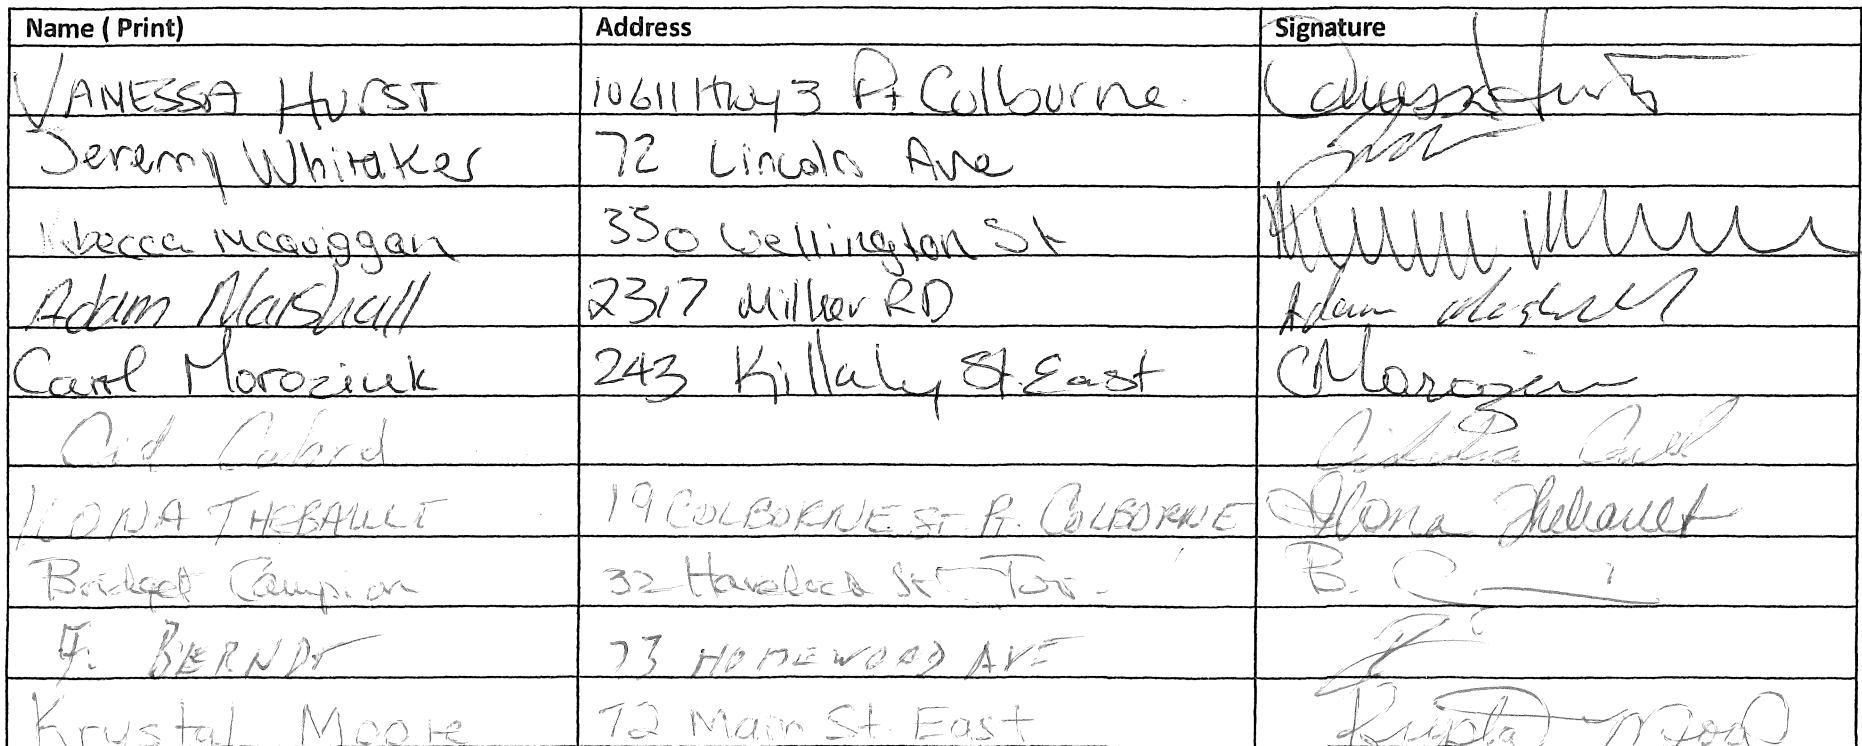 Name ( Print) Address Signature
VANESSA HURST 10611 Hwy 3 Pt Colburne.
Jeremy Whitaker 72 Lincoln Ave
becca mcquiggan 350 Wellington St
Adam Marshall 2317 Miller RD Adam Marshall
Carol Moroziuk 243 Killaly St. East CMoroziu
ILONA THEBAULT 19 COLBORNE ST. Pt. COLBORNE Ilona Thebault
Bridget Campion 32 Havelock St Tor. B. C
F. BERNDT 73 HOMEWOOD AVE
Krystal Moore 72 Main St. East Krystal Moore